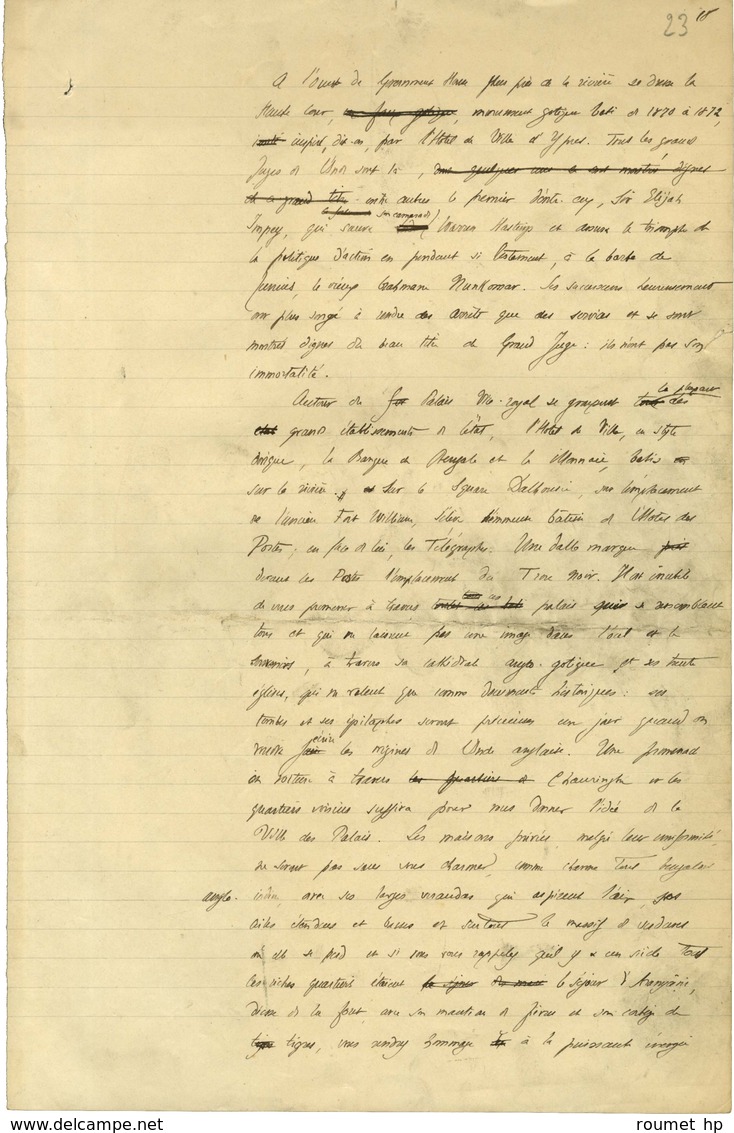 23
A l'ouest de Government House plus près de la rivière se dresse la
Haute Cour, monument gothique bati de 1870 à 1872,
inspiré, dit-on, par l'Hôtel de Ville d'Ypres. Tous les grands
Juges de l'Inde sont là, quelques uns se sont montrés dignes
de ce grand titre entre autres le premier d'entre eux, Sir Elijah
Impey, qui sauva son camarade Warren Hastings et assura le triomphe de
la politique d'action en pendant si lestement, à la barbe de
Junius, le vieux brahmane Nunkomar. Ses successeurs heureusement
ont plus songé à rendre des arrêts que des services et se sont
montrés dignes du beau titre de Grand Juge : ils n'ont pas son
immortalité.
Autour du Palais Vice-royal se groupent la plupart des
grands établissements de l'état, l'Hôtel de Ville, en style
dorique, la Banque de Bengale et la Monnaie, batis
sur la rivière. Sur le Square Dalhousie, sur l'emplacement
de l'ancien Fort William, s'élève l'immense bâtiment de l'Hôtel des
Postes ; en face de lui, les Télégraphes. Une dalle marque
devant les Postes l'emplacement du Trou Noir. Il est inutile
de vous promener à travers ces palais qui se ressemblent
tous et qui ne laissent pas une image dans l'oeil et le
souvenir, à travers sa cathédrale anglo-gothique et ses trente
églises, qui ne valent que comme documents historiques : ses
tombes et ses épitaphes seront précieuses un jour quand on
voudra écrire les origines de l'Inde anglaise. Une promenade
en voiture à travers les quartiers de Chauringhi et les
quartiers voisins suffira pour vous donner l'idée de la
Ville des Palais. Les maisons privées malgré leur uniformité,
ne seront pas sans vous charmer, comme charme tout bungalow
anglo-indien, avec ses larges verandas qui aspirent l'air, ses
ailes étendues et basses et surtout le massif de verdure
où elle se perd et si vous vous rappelez qu'il y a un siècle tous
ces riches quartiers étaient le séjour d'Aranyânî,
déesse de la forêt, avec son manteau de fièvre et son cortège de
tigres, vous rendrez hommage à la puissante énergie
roumet hp